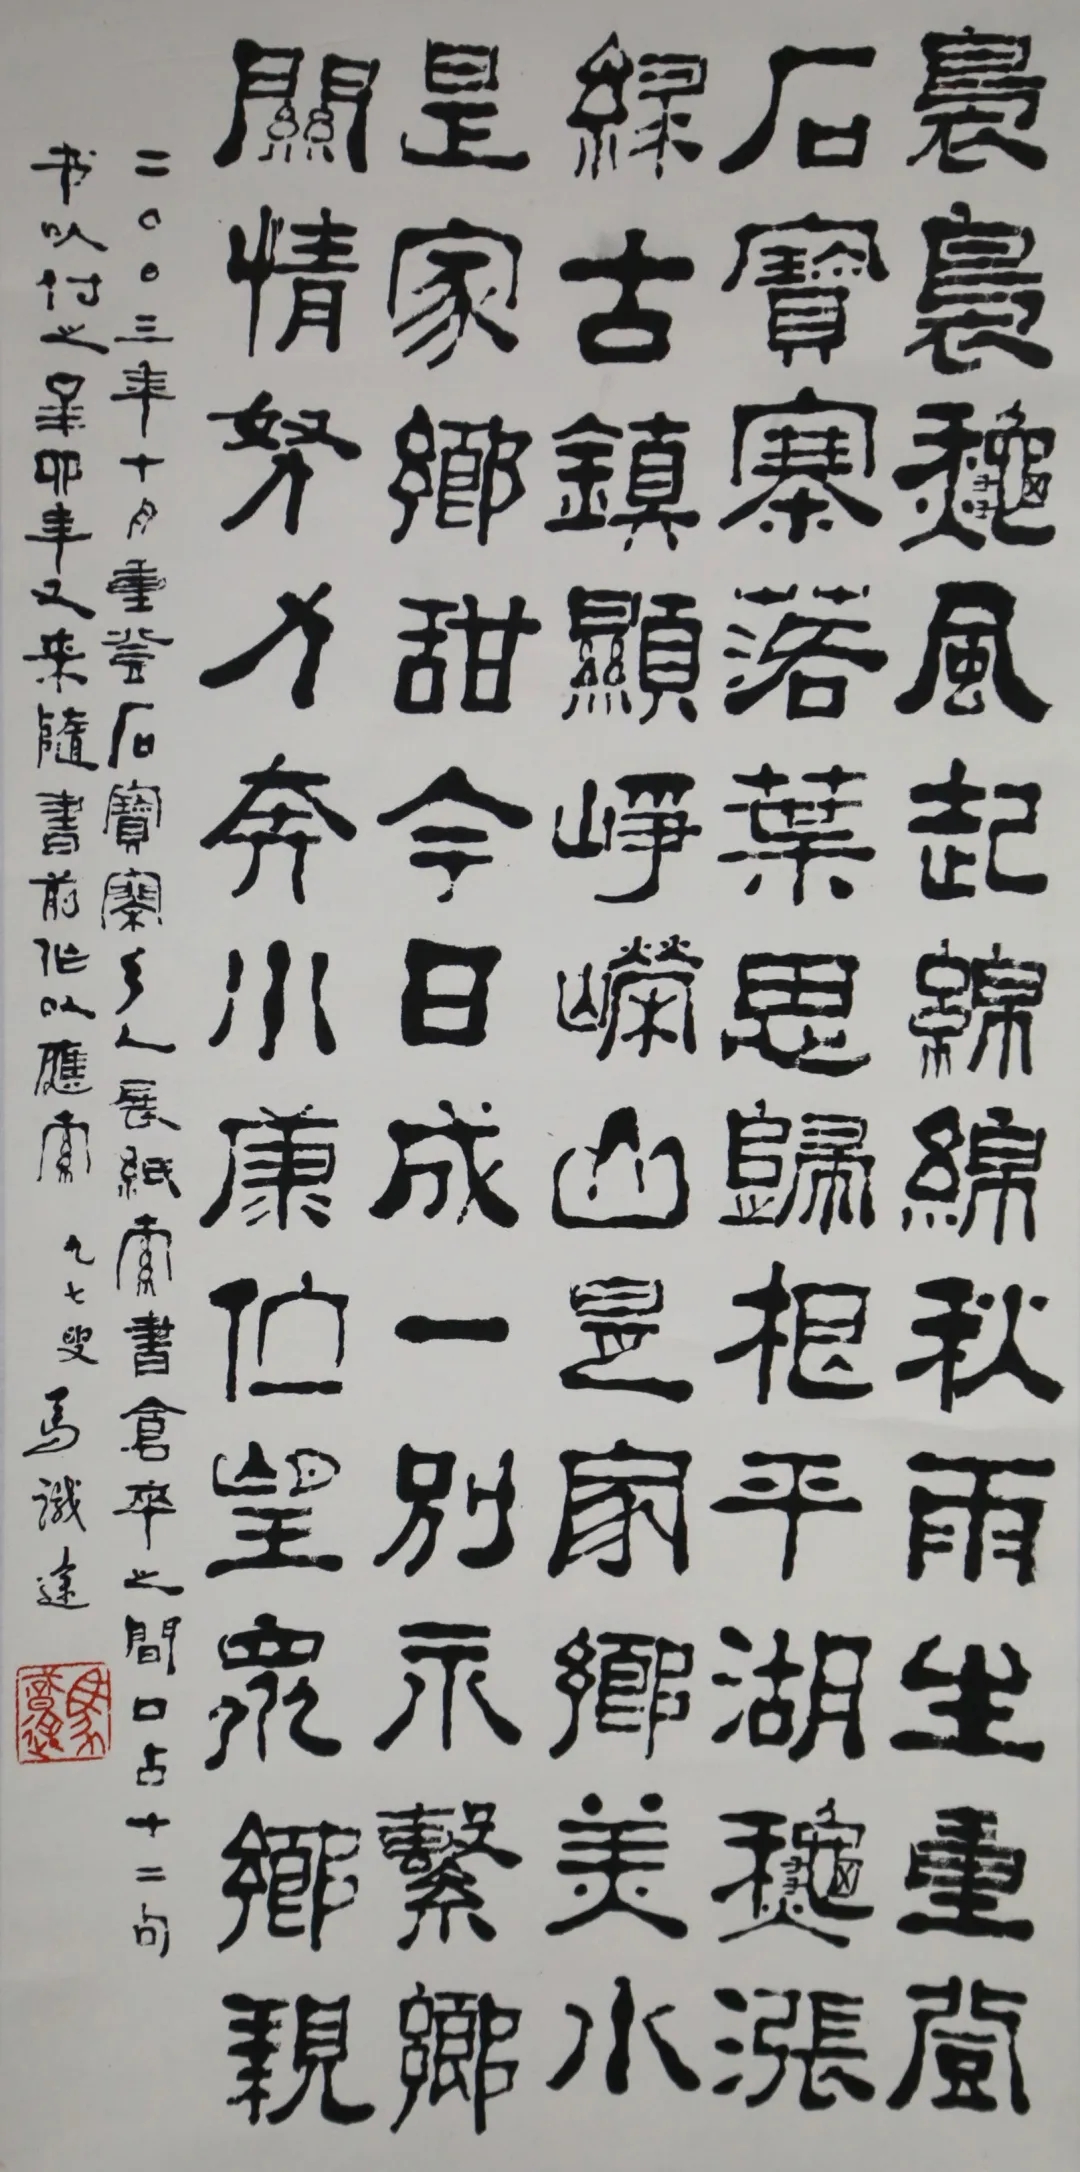 裊裊龝風起綿綿秋雨生重登
石寶寨落葉思歸根平湖龝漲
緑古鎮顯崢嶸山是家鄉美水
是家鄉甜今日成一别永繫鄉
關情努力奔小康佇望衆鄉親
二〇〇三年十月重登石寶寨乡人展紙索書倉卒之間口占十二句
书以付之辛卯年又来隨書前作以應索
九七叟馬識途
馬識途